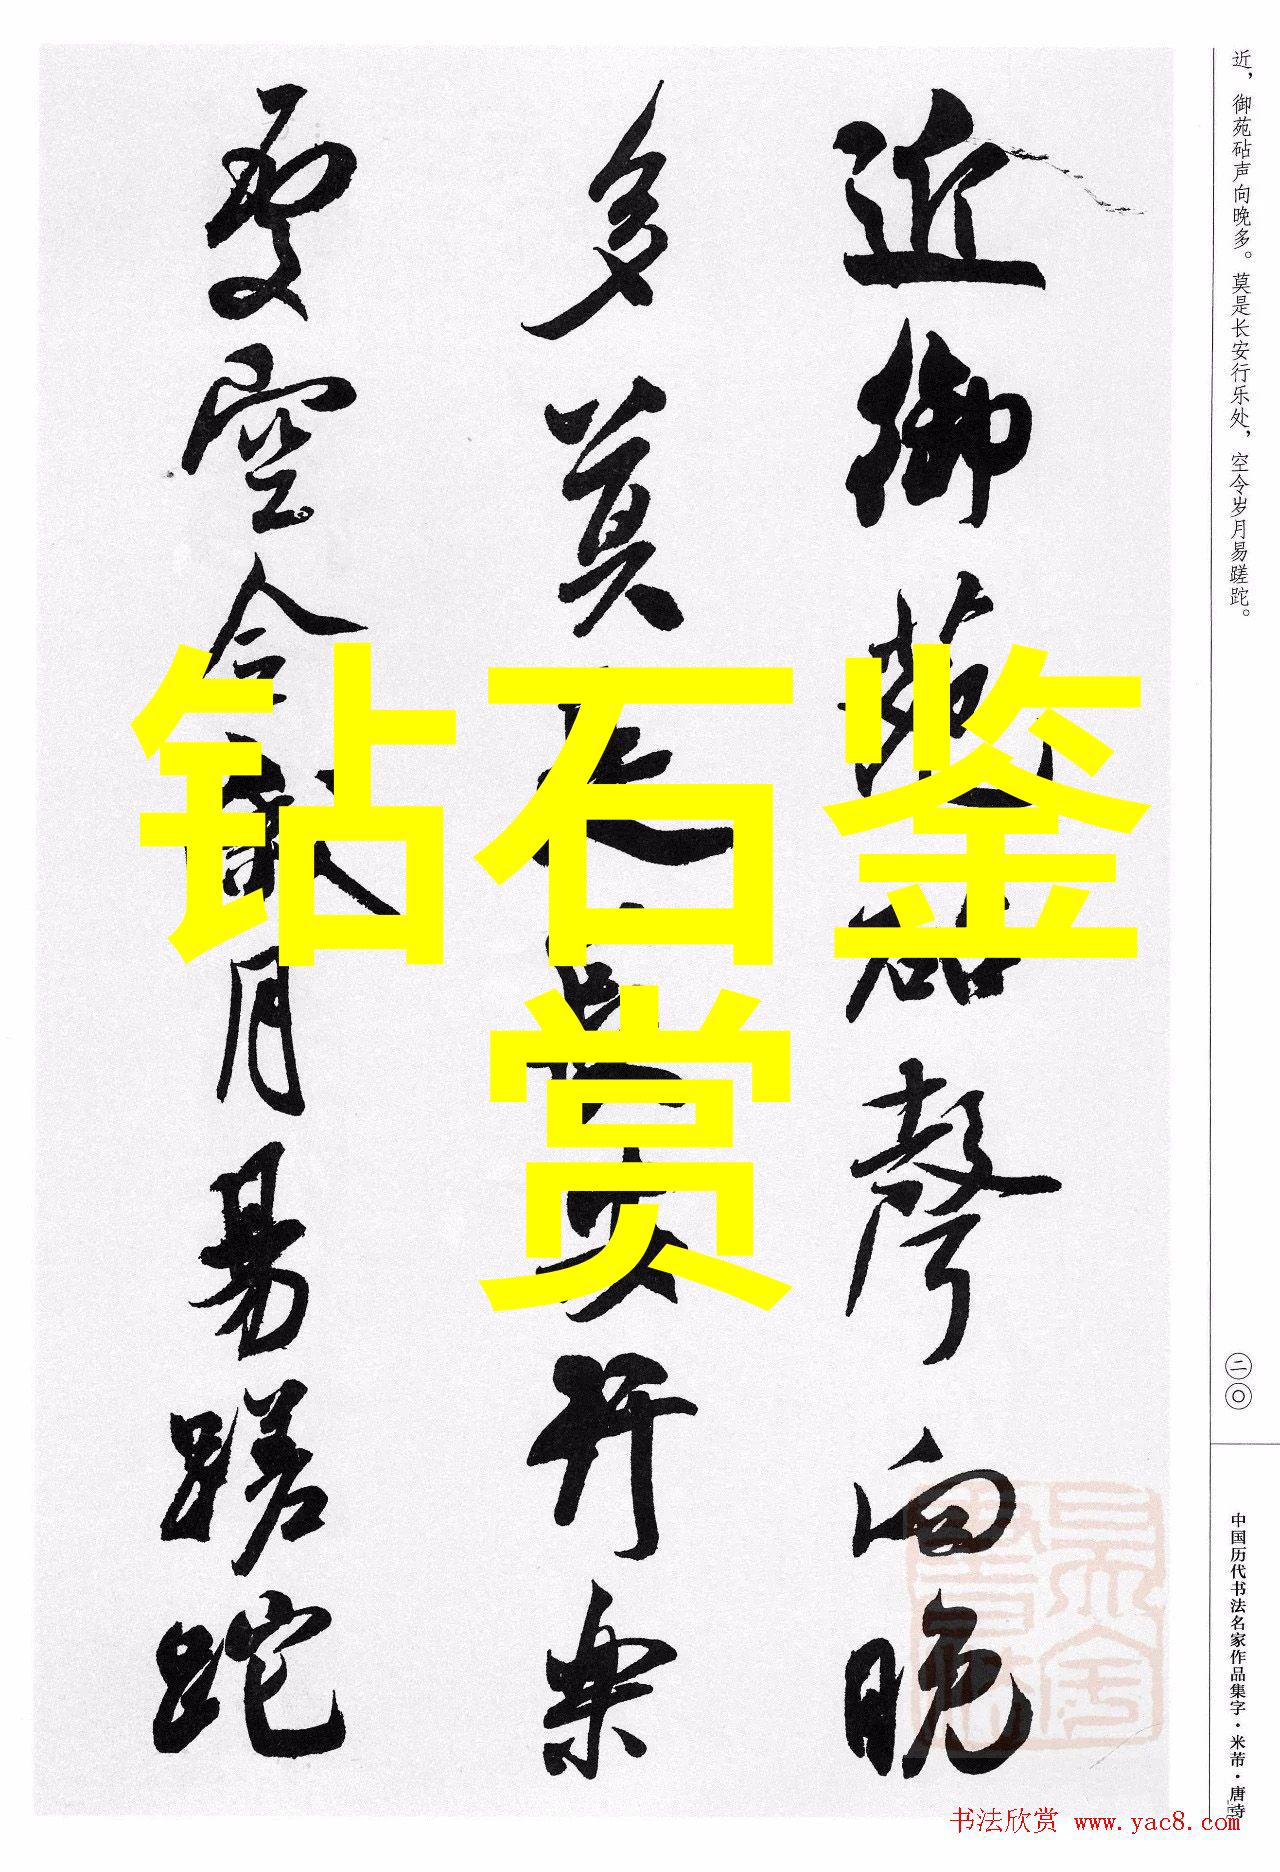 近御苑砧聲向晚
多莫是長安行樂
處空令歲月易蹉跎
近，御苑砧声向晚多。莫是长安行乐处，空令岁月易蹉跎。
二〇
中国历代书法名家作品集字·米芾·唐诗
钻石鉴
赏
书法欣赏 www.yac8.com